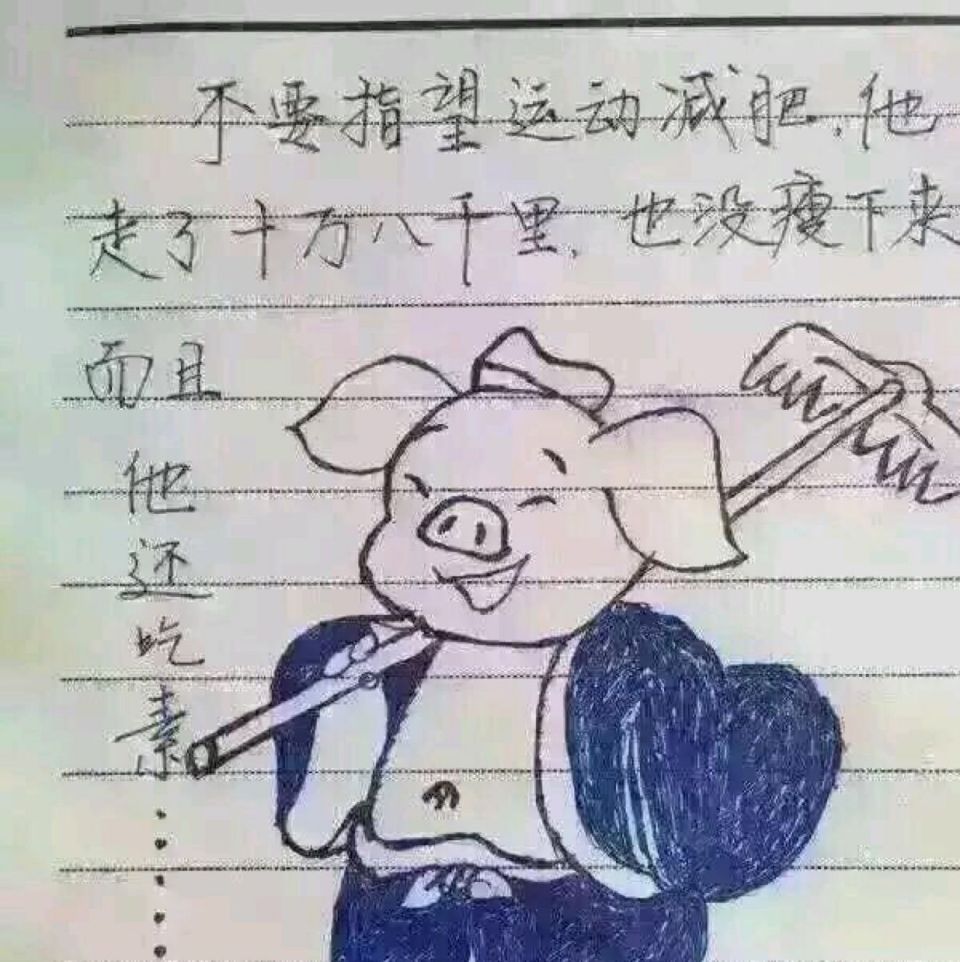 不要指望运动减肥,他
走了十万八千里,也没瘦下来
而且
他
还
吃
素
······